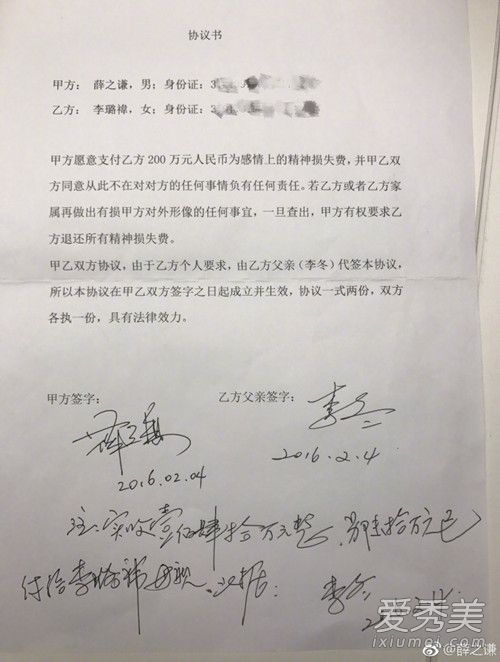 协议书
甲方：薛之谦，男；身份证：3
乙方：李璐禕，女；身份证：
甲方愿意支付乙方 200 万元人民币为感情上的精神损失费，并甲乙双
方同意从此不在对对方的任何事情负有任何责任。若乙方或者乙方家
属再做出有损甲方对外形像的任何事宜，一旦查出，甲方有权要求乙
方退还所有精神损失费。
甲乙双方协议，由于乙方个人要求，由乙方父亲（李冬）代签本协议，
所以本协议在甲乙双方签字之日起成立并生效，协议一式两份，双方
各执一份，具有法律效力。
甲方签字： 乙方父亲签字：
薛之谦 李冬
2016.02.04 2016.2.4
注：实收壹佰肆拾万元整，另陆拾万元已
付给李璐禕母亲，此据： 李冬
爱秀美
ixiumei.com
@薛之谦